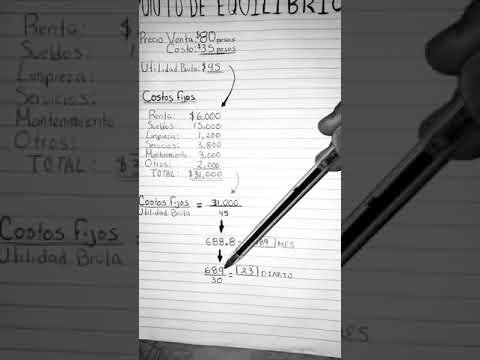 PUNTO DE EQUILIBRIO
Precio Venta: $80 pesos
Costo: $35 pesos
Utilidad Bruta: $45
Costos Fijos
Renta: $6,000
Sueldos: 15,000
Limpieza: 1,200
Servicios: 3,800
Mantenimiento 3,000
Otros: 2,000
TOTAL: $31,000
Costos Fijos = 31,000
Utilidad Bruta 45
688.8 = 689 MES
689 = 23 DIARIO
30
Renta:
Sueldos:
Limpieza:
Servicios:
Mantenimiento
Otros:
TOTAL: $3
Costos Fijos
Utilidad Bruta